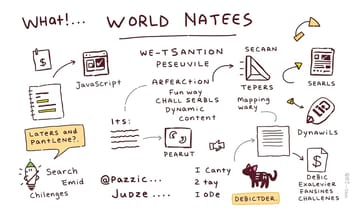 What!... WORLD NATEES
$
JavaScript
WE-TSANTION
PESEUVILE
ARFERCTION
Fun way
CHALL SERBLS
DYNAMIC
content
SECARN
TEPERS
Mapping
wary
SEARLS
LATERS AND
PANTLENE?.
ITS:
PEARUT
DYNAWILS
Search
Emid
Chilenges
@Pazzic...
Judze ....
I Canty
2 tay
I ODE
DEBICTDER.
$
DEBIC
EXALEVIER
FANSINES
CHALLENES